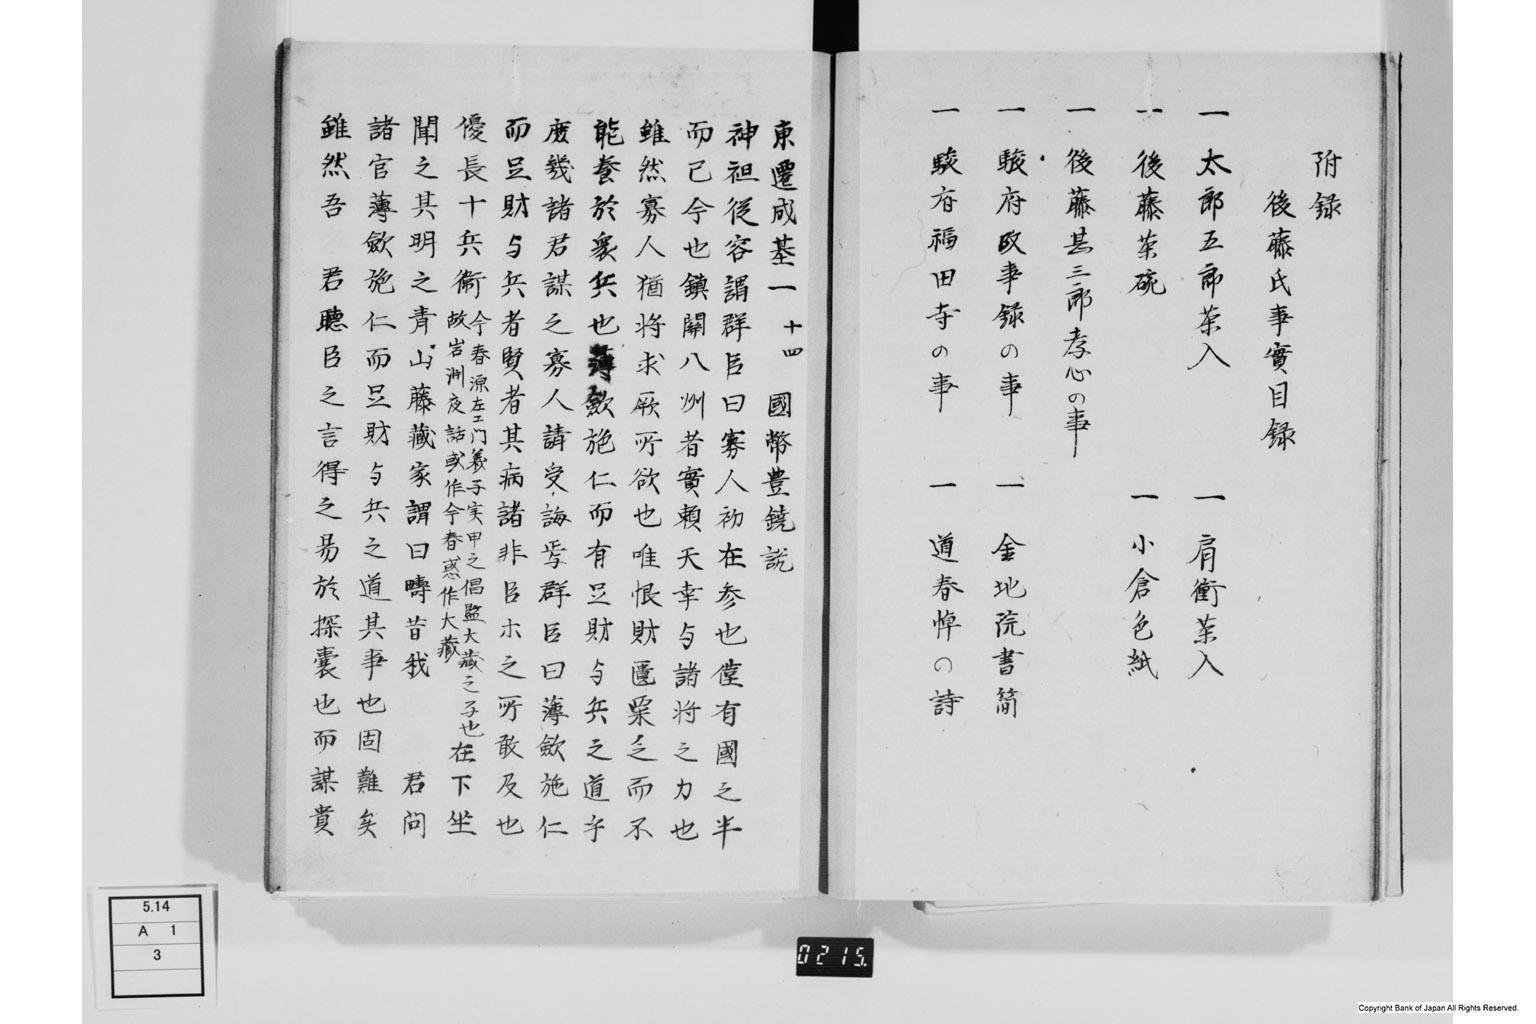 附録
後藤氏事實目録
一 太郎五郎茶入 一 肩衝茶入
一 後藤茶碗 一 小倉色紙
一 後藤甚三郎孝心の事
一 駿府政事録の事 一 金地院書简
一 駿府福田寺の事 一 道春悼の詩
東遷成基一 十四 國幣豊饒説
神祖従容謂群臣曰寡人初在参也僅有國之半
而已今也鎮關八州者實頼天幸与諸将之力也
雖然寡人猶将求厥所欲也唯恨財匱粟乏而不
能養於衆兵也薄歛施仁而有足財与兵之道乎
庶幾諸君謀之寡人請受誨焉群臣曰薄歛施仁
而足財与兵者賢者其病諸非臣ホ之所敢及也
優長十兵衛
今春源左エ门義子实甲之倡監大藏之子也
故岩渕夜話或作今春惑作大藏
在下坐
聞之其明之青山藤藏家謂曰疇昔我 君问
諸官薄歛施仁而足財与兵之道其事也固難矣
雖然吾 君聽臣之言得之易於探囊也而謀貴
5.14
A 1
3
0215.
Copyright Bank of Japan All Rights Reserved.